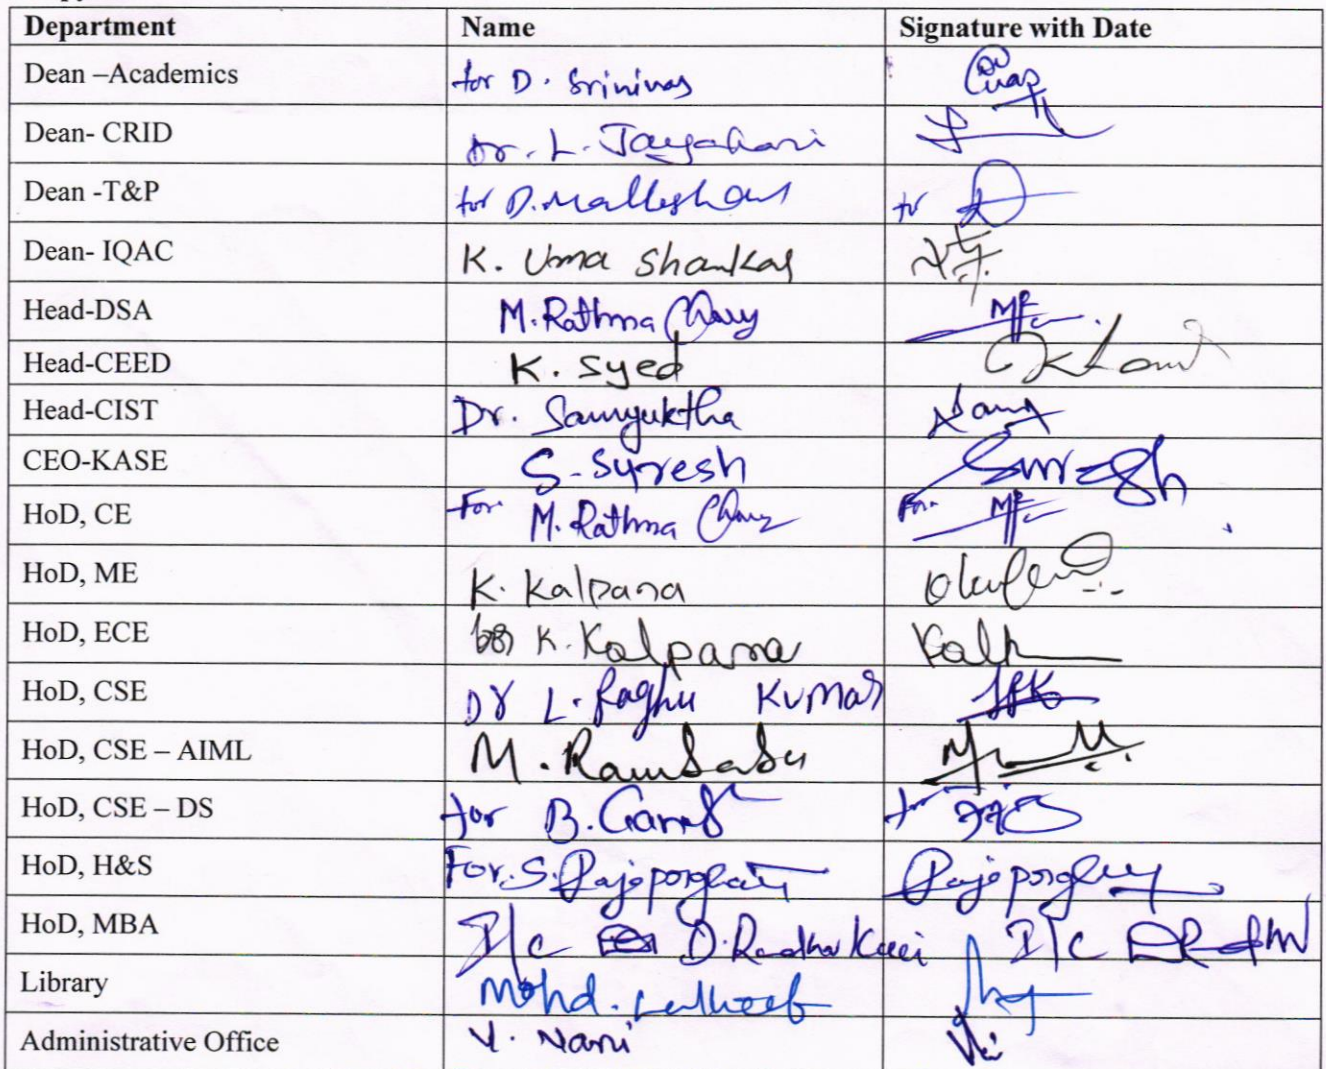 Department Name Signature with Date
Dean –Academics for D. Srinivas
Dean- CRID Dr. L. Jayahari
Dean -T&P for D. Mallesham for
Dean- IQAC K. Uma Shankar
Head-DSA M. Rathma Chary
Head-CEED K. Syed
Head-CIST Dr. Samyuktha
CEO-KASE S. Suresh Suresh
HoD, CE For M. Rathma Chary For
HoD, ME K. Kalpana
HoD, ECE for K. Kalpana
HoD, CSE Dr L. Raghu Kumar
HoD, CSE – AIML M. Rambabu
HoD, CSE – DS for B. Ganesh for
HoD, H&S For. S.
HoD, MBA I/c D. Radha I/c
Library Mohd.
Administrative Office Y. Nani